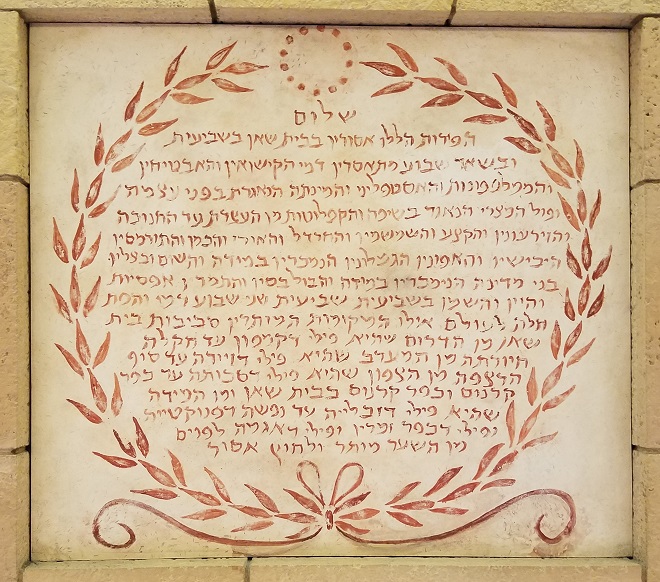 שלום
הפירות הללו אסורין בבית שאן בשביעית
ובשאר שבוע מתאסרין דמי הקישואין והאבטיחין
והממלפפונות והאסטפליני והמינתה הנאגדת בפני עצמה
ופול המצרי הנאגד בשיפה והקפלוטות מן העצרת עד החנוכה
והזירעונין והקצע והשמשמין והחרדל והאורז והכמן והתורמסין
היבישין והאפונין הגמלונין הנמכרין במידה והשום ובצלין
בני מדינה הנימכרין במידה והבולבסין והתמרין אפסיות
והיין והשמן בשביעית שביעית שני שבוע דמי והפת
חלה לעולם אילו המקומות המותרין סביבות בית
שאן מן הדרום שהיא פילי דקמפון עד חקלה
חיורתה מן המערב שהיא פילי דזיירה עד סוף
הרצפה מן הצפון שהיא פילי דסכותה עד כפר
קרנוס וכפר קרנוס כבית שאן ומן המזרח
שהיא פילי דזבלייה עד נפשה דפנוקטייה
ופילי דכפר זמרין ופילי דאגמה לפנים
מן השער מותר ולחוץ אסור